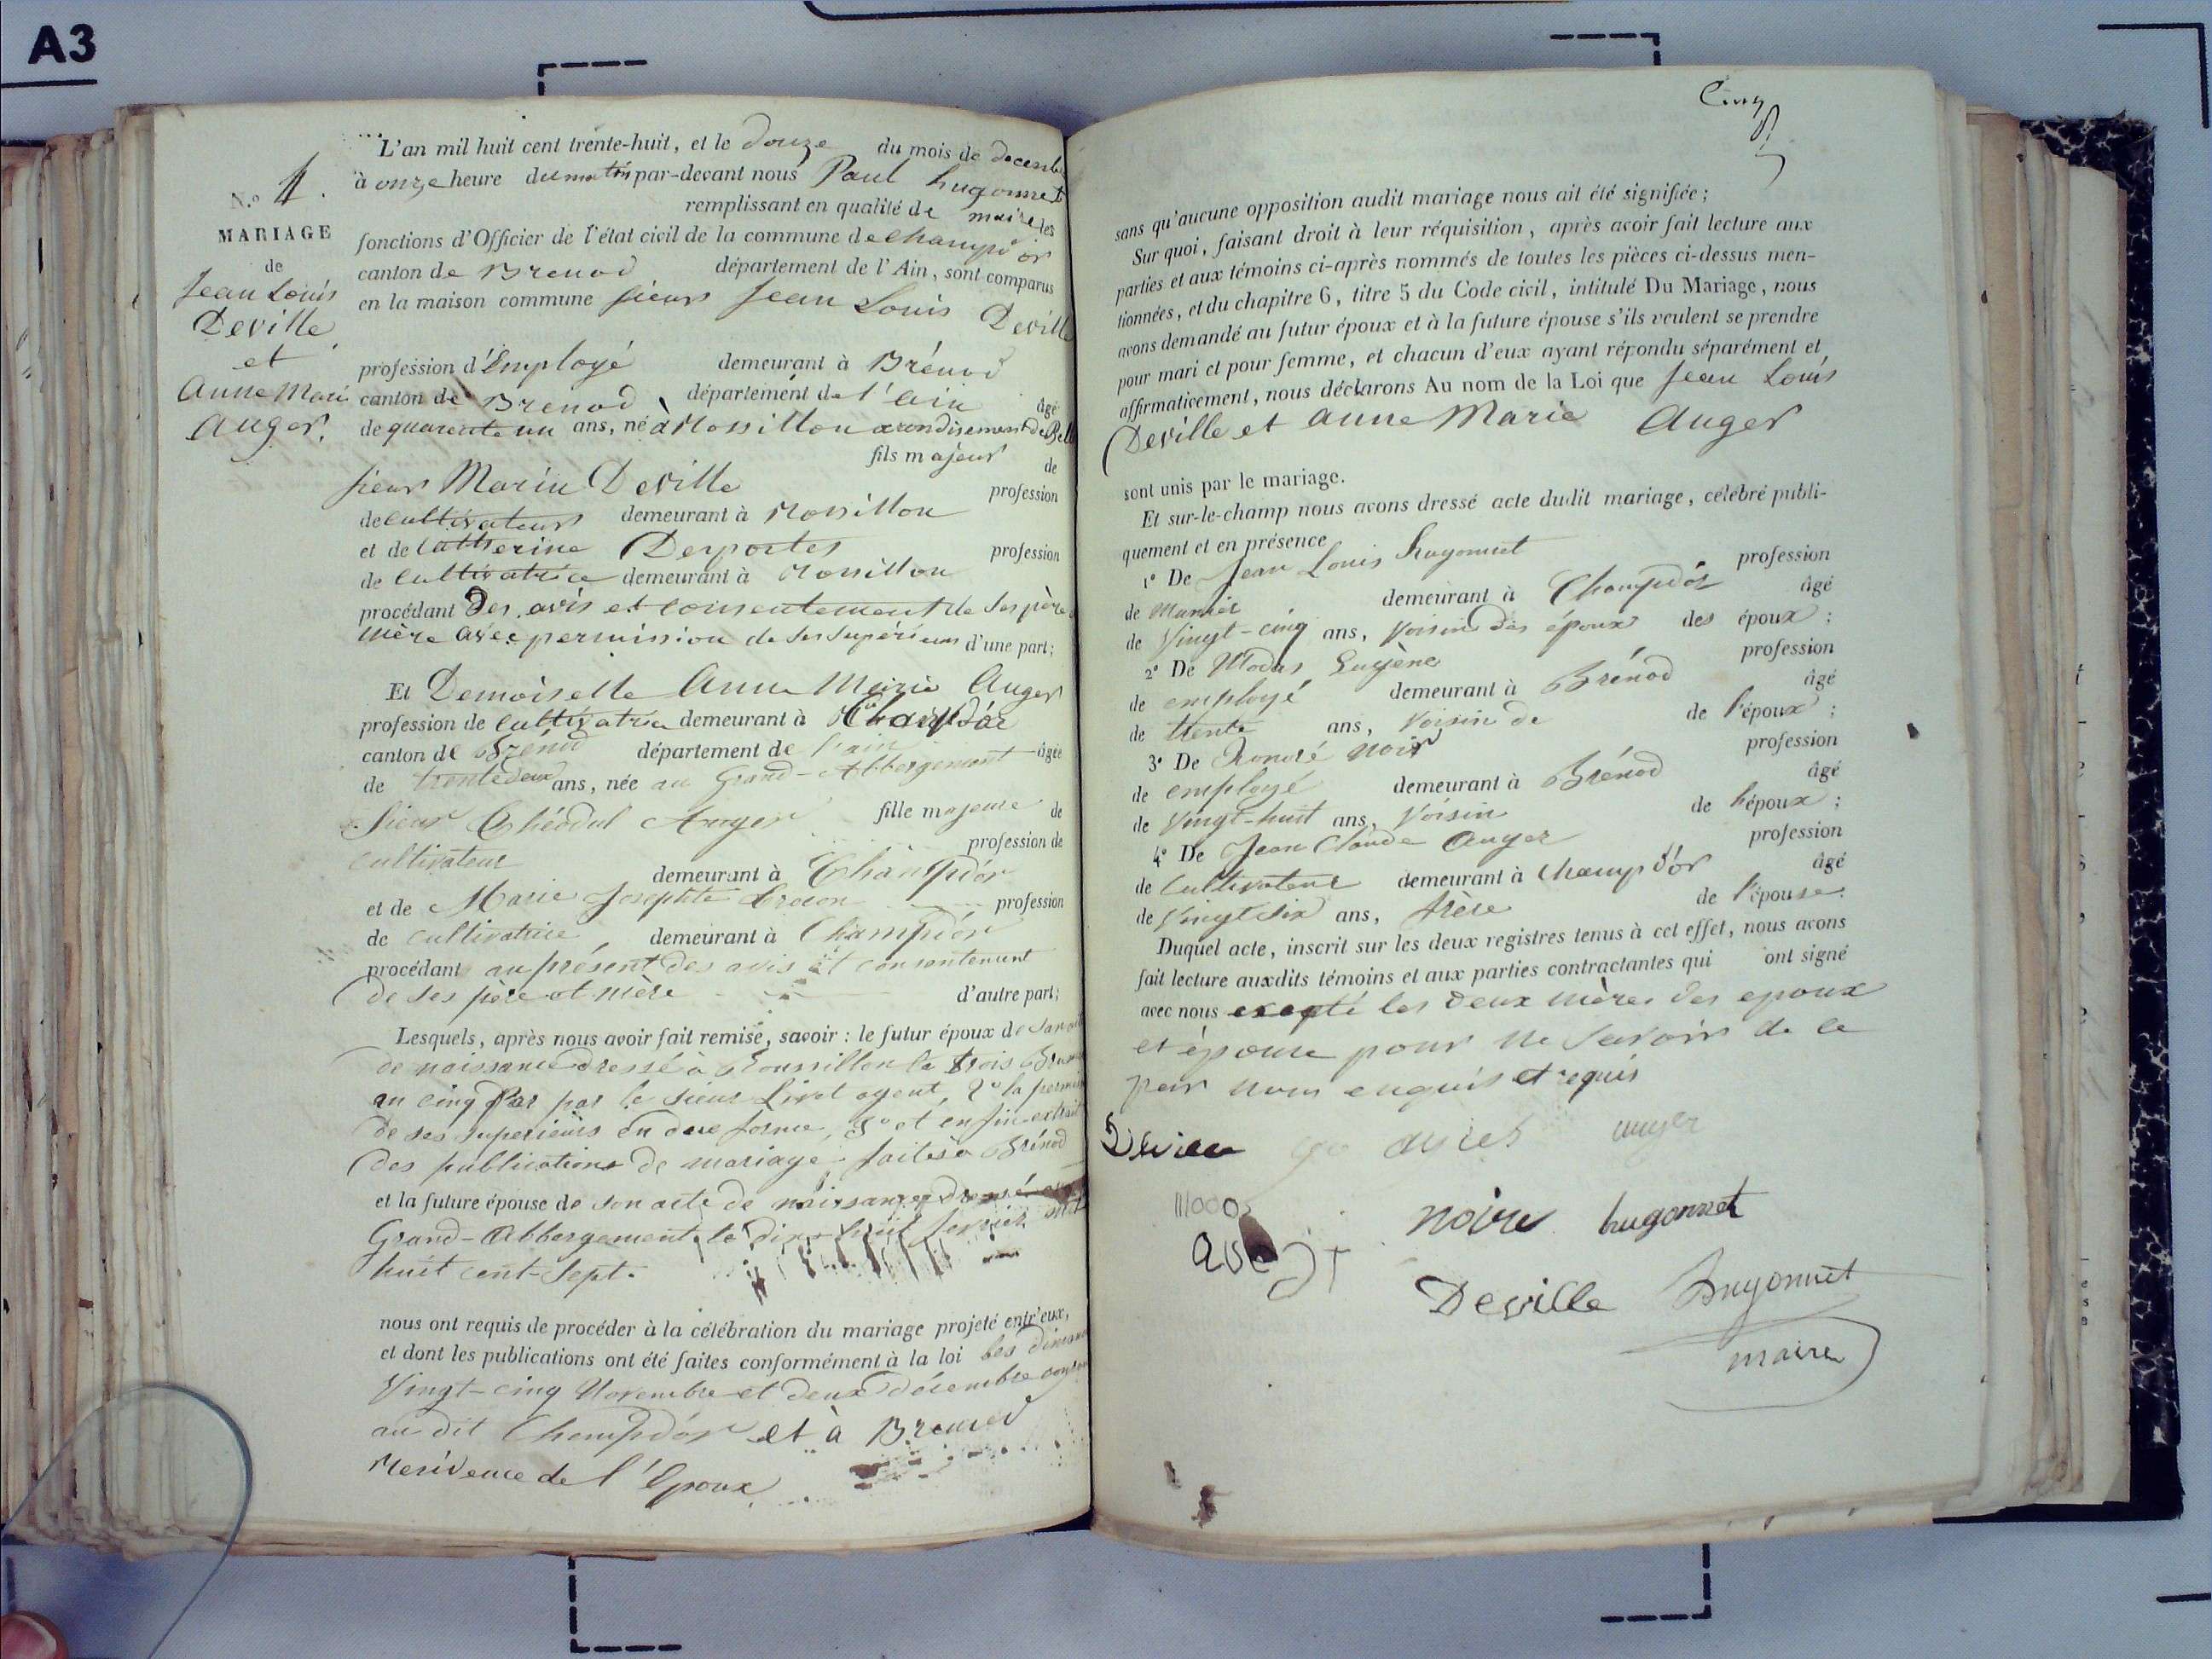 A3
L'an mil huit cent trente-huit, et le douze du mois de decembre
à onze heure du matin par-devant nous Paul hugonnet
remplissant en qualité de maire les
fonctions d'Officier de l'état civil de la commune de Champd'or
canton de Brenod département de l'Ain, sont comparus
en la maison commune sieur Jean Louis Deville
profession d'Employé demeurant à Brénod
canton de Brenod département de l'ain âgé
de quarente un ans, né à Rossillon arondisement de Bell
fils majeur de
sieur Marin Deville profession
de cultivateur demeurant à Rossillon
et de Catherine Desportes profession
de Cultivatrice demeurant à Rossillon
procédant Des avis et consentement de ses père
mère avec permission de ses supérieurs d'une part;
Et Demoiselle Anne Marie Auger
profession de cultivatrice demeurant à Champd'or
canton de Brénod département de l'ain âgée
de trente deux ans, née au Grand-Abbergement
fille majeure de
Sieur Théodul Auger profession de
cultivateur demeurant à Champd'or
et de Marie Josephte profession
de cultivatrice, demeurant à Champd'or
procédant au présent des avis et consentement
de ses père et mère d'autre part;
Lesquels, après nous avoir fait remise, savoir: le futur époux de
de naissance dressé à Roussillon le trois
an cinq par le sieur agent, 2° la
de ses superieurs en due forme, 3° et enfin extrait
des publications de mariage faites à Brénod
et la future épouse de son acte de naissance dressé
Grand-Abbergement, le dix-huit
huit cent-sept.
nous ont requis de procéder à la célébration du mariage projeté entr'eux,
et dont les publications ont été faites conformément à la loi les
Vingt-cinq Novembre et deux décembre
au dit Champd'or et à Brenod
residence de l'Epoux
N.° 4.
MARIAGE
de
Jean Louis
Deville
et
Anne Mari
Auger.
Cinq
sans qu'aucune opposition audit mariage nous ait été signifiée;
Sur quoi, faisant droit à leur réquisition, après avoir fait lecture aux
parties et aux témoins ci-après nommés de toutes les pièces ci-dessus men-
tionnées, et du chapitre 6, titre 5 du Code civil, intitulé Du Mariage, nous
avons demandé au futur époux et à la future épouse s'ils veulent se prendre
pour mari et pour femme, et chacun d'eux ayant répondu séparément et
affirmativement, nous déclarons Au nom de la Loi que Jean Louis
Deville et Anne Marie Auger
sont unis par le mariage.
Et sur-le-champ nous avons dressé acte dudit mariage, célébré publi-
quement et en présence
1° De Jean Louis hugonnet profession
de demeurant à Champd'or âgé
de Vingt-cinq ans, voisin des époux des époux;
2° De Eugène profession
de employé demeurant à Brénod âgé
de trente ans, voisin de de l'époux;
3° De noir profession
de employé demeurant à Brénod âgé
de Vingt-huit ans, Voisin de l'époux;
4° De Jean Claude Auger profession
de Cultivateur demeurant à Champd'or âgé
de Vingt six ans, frère de l'épouse.
Duquel acte, inscrit sur les deux registres tenus à cet effet, nous avons
fait lecture auxdits témoins et aux parties contractantes qui ont signé
avec nous excepté les deux mères des epoux
et épouse pour ne savoir de ce
par nous enquis et requis
Deville
noire hugonnet
Deville hugonnet
maire